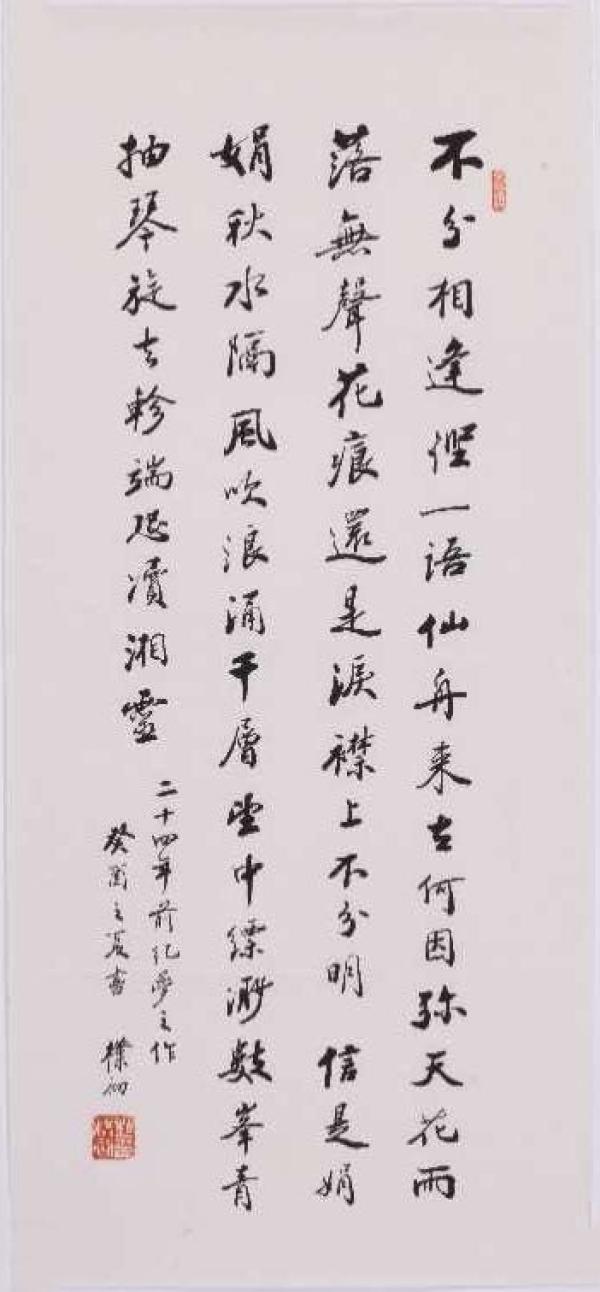 不分相逢慳一語仙舟来去何因弥天花雨
落無聲花痕還是淚襟上不分明 信是娟
娟秋水隔風吹浪涌千層望中縹渺數峯青
抽琴旋去軫端恐瀆湘靈
二十四年前纪夢之作
癸酉之夏書 樸初